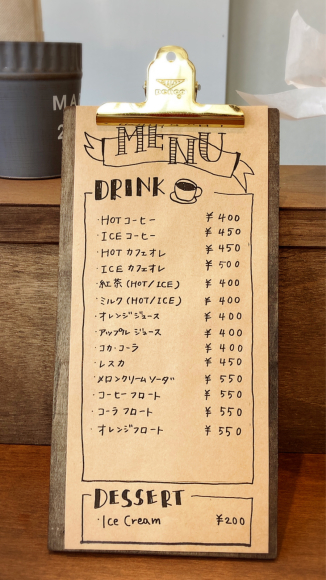 MA
2
MENU
DRINK
・HOT コーヒー ¥400
・ICE コーヒー ¥450
・HOT カフェオレ ¥450
・ICE カフェオレ ¥500
・紅茶 (HOT/ICE) ¥400
・ミルク (HOT/ICE) ¥400
・オレンジジュース ¥400
・アップル ジュース ¥400
・コカ・コーラ ¥400
・レスカ ¥450
・メロンクリームソーダ ¥550
・コーヒー フロート ¥550
・コーラ フロート ¥550
・オレンジフロート ¥550
DESSERT
・Ice Cream ¥200